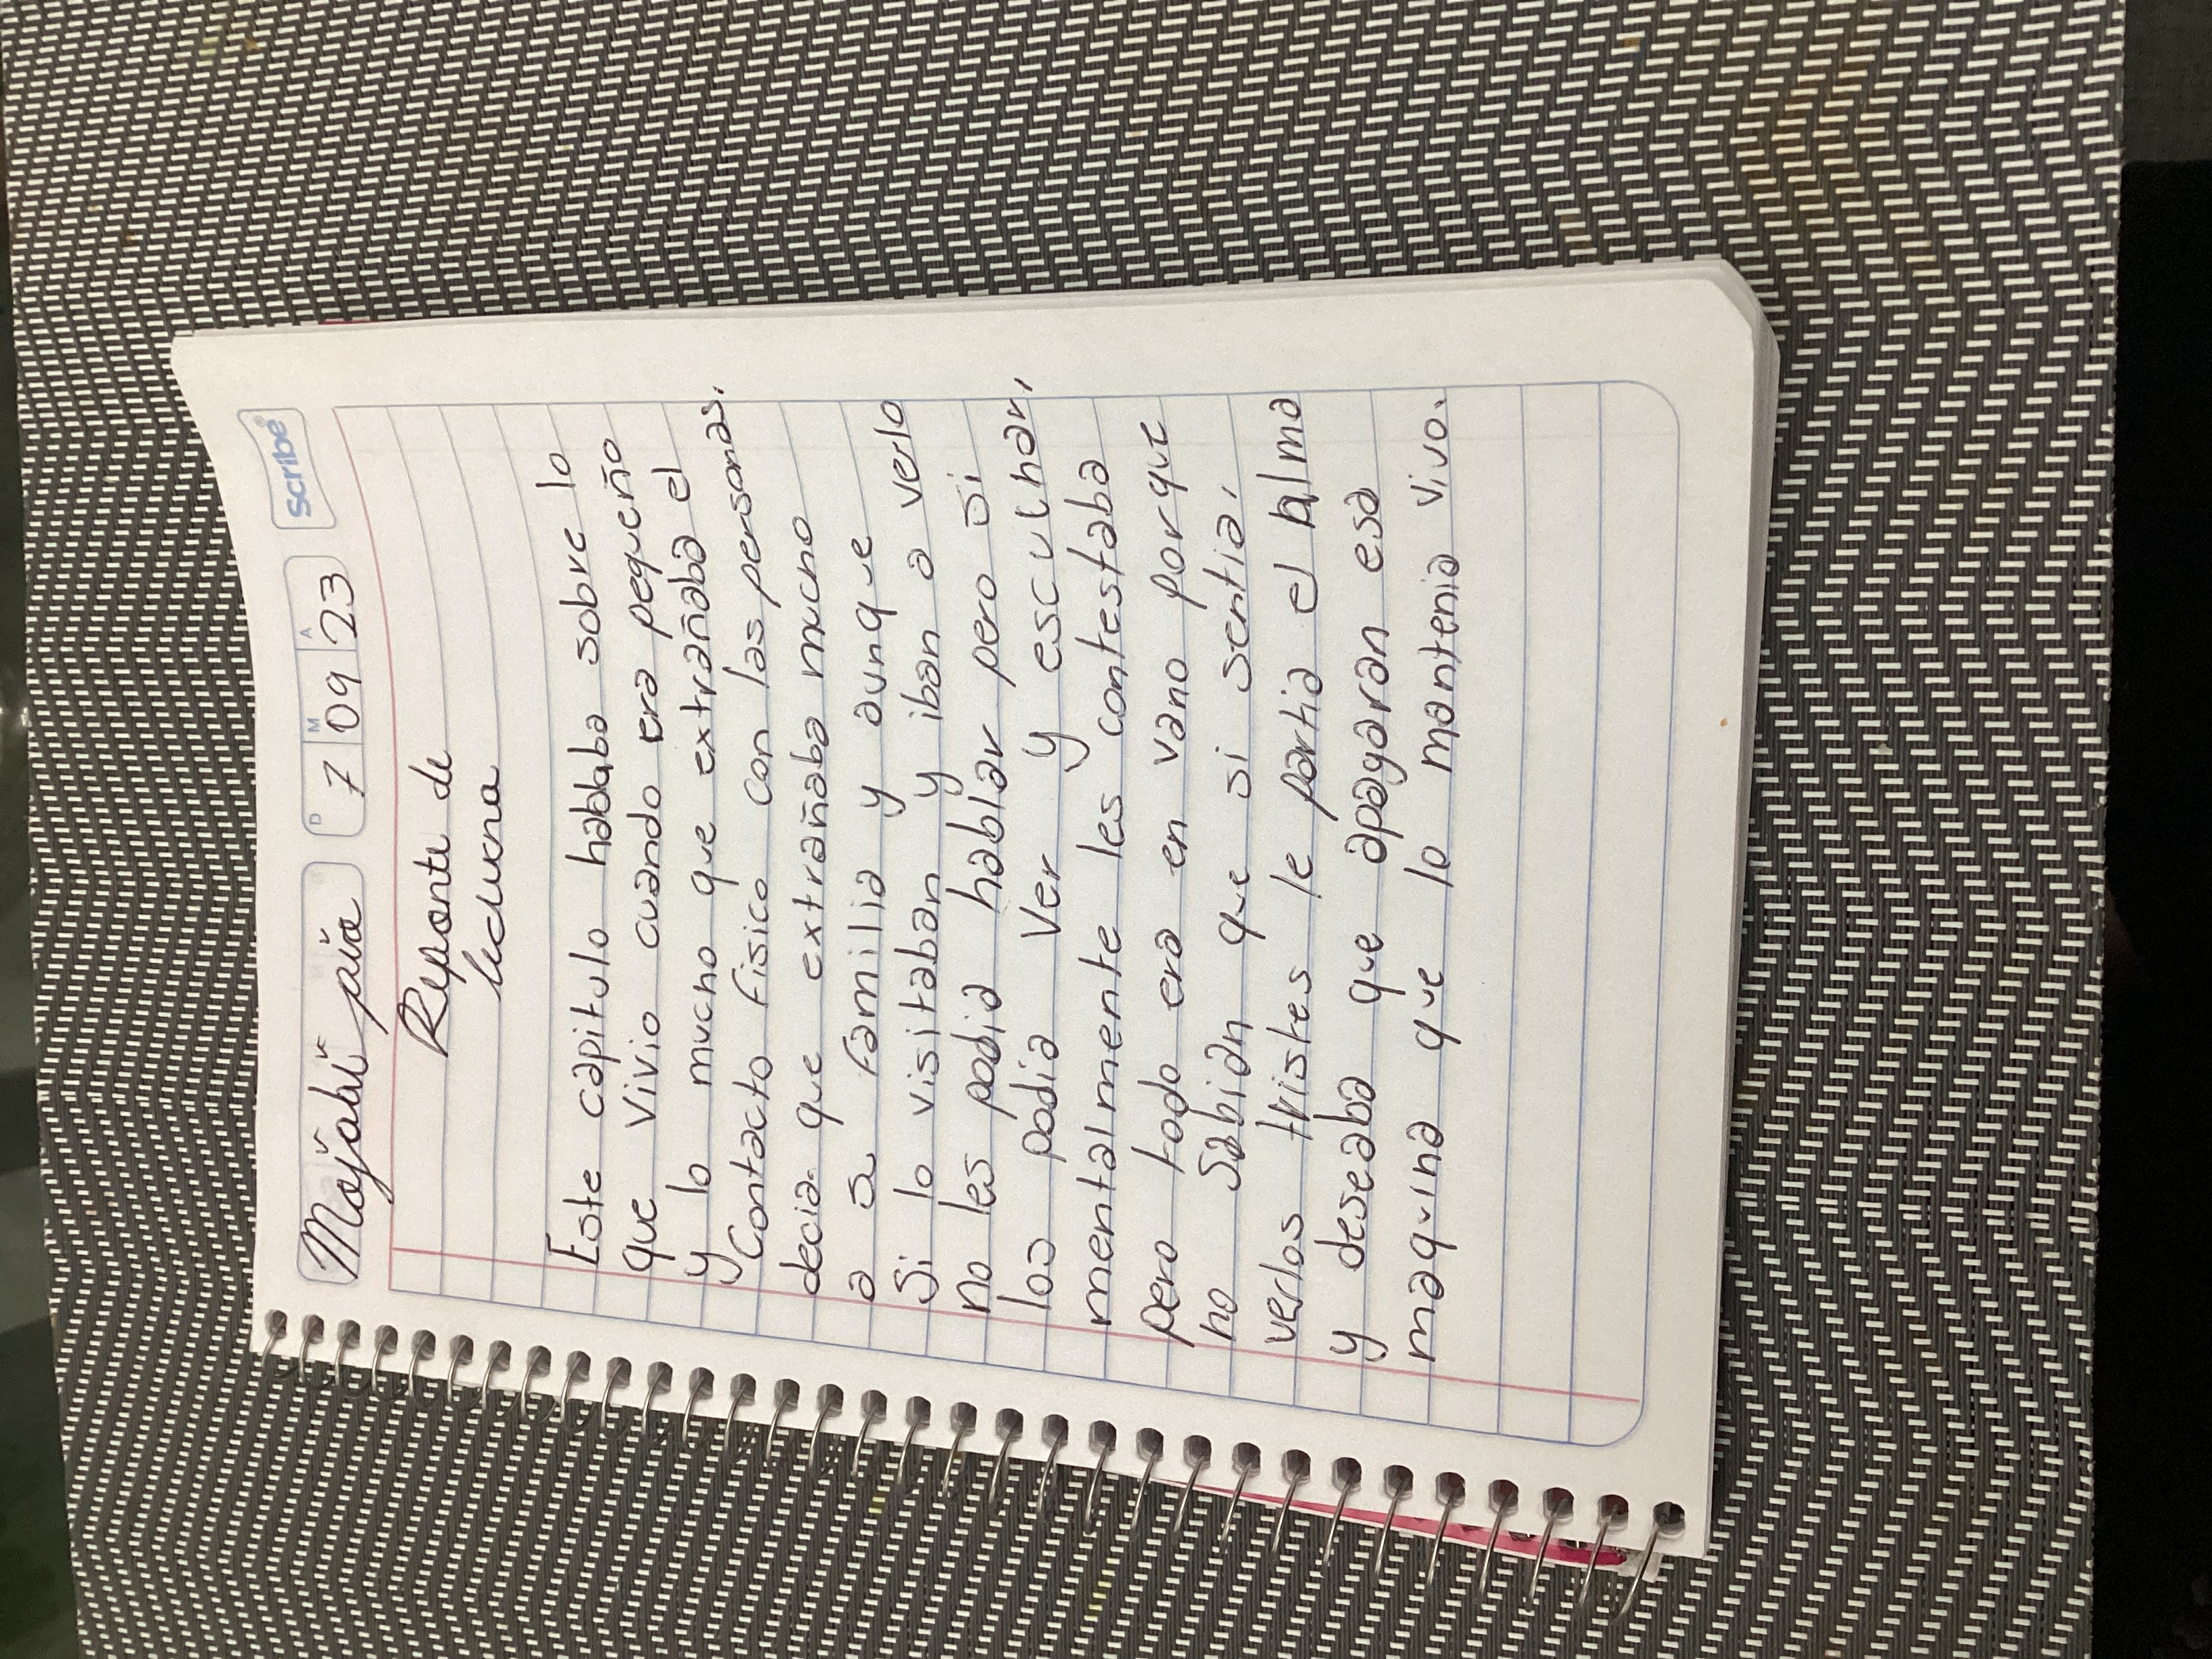 scribe
D M A
7 09 23
Reporte de
lectura
Este capitulo hablaba sobre lo
que vivio cuando era pequeño
y lo mucho que extrañaba el
contacto fisico con las personas,
decia que extrañaba mucho
a su familia y aunque
si lo visitaban y iban a verlo
no les podia hablar pero si
los podia ver y escuchar,
mentalmente les contestaba
pero todo era en vano porque
no sabian que si sentia,
verlos tristes le partia el alma
y deseaba que apagaran esa
maquina que lo mantenia vivo.